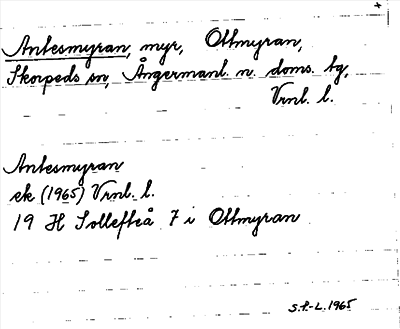 Antesmyran, myr, Ottmyran,
Skorpeds sn, Ångermanl. n. doms. tg,
Vrnl. l.
Antesmyran
ek (1965) Vrnl. l.
19 H Sollefteå 7 i Ottmyran
S.P.-L. 1965